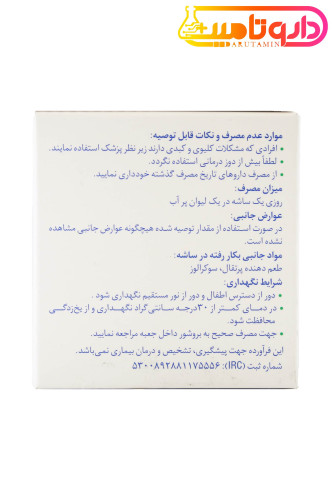 داروتامین
DARUTAMIN
موارد عدم مصرف و نکات قابل توصیه:
• افرادی که مشکلات کلیوی و کبدی دارند زیر نظر پزشک استفاده نمایند.
• لطفاً بیش از دوز درمانی استفاده نگردد.
• از مصرف داروهای تاریخ مصرف گذشته خودداری نمایید.
میزان مصرف:
روزی یک ساشه در یک لیوان پر آب
عوارض جانبی:
در صورت استفاده از مقدار توصیه شده هیچگونه عوارض جانبی مشاهده
نشده است.
مواد جانبی بکار رفته در ساشه:
طعم دهنده پرتقال، سوکرالوز
شرایط نگهداری:
• دور از دسترس اطفال و دور از نور مستقیم نگهداری شود .
• در دمـای کمتـر از ۳۰درجـه سـانتی‌گراد نگهـداری و از یخ‌زدگـی
محافظت شود.
• جهت مصرف صحیح به بروشور داخل جعبه مراجعه نمایید.
این فرآورده جهت پیشگیری، تشخیص و درمان بیماری نمی‌باشد.
شماره ثبت (IRC): ۵۳۰۰۸۹۲۸۸۱۱۷۵۵۵۶